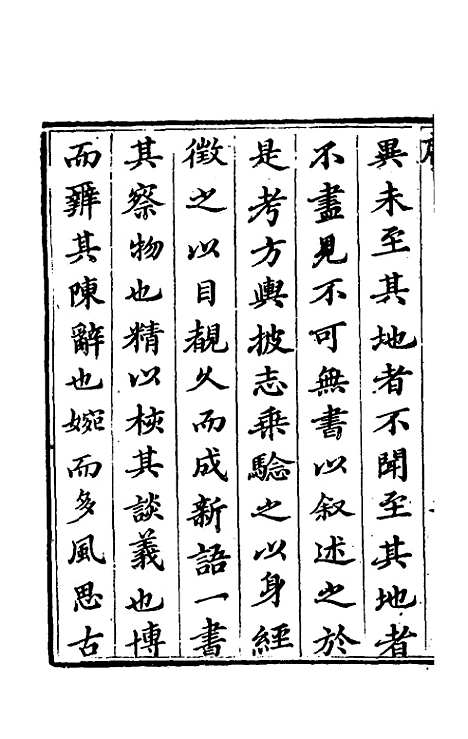 異未至其地者不聞至其地者
不盡見不可無書以叙述之於
是考方輿披志乗騐之以身經
徵之以目覩久而成新語一書
其察物也精以核其談義也博
而辨其陳辭也婉而多風思古